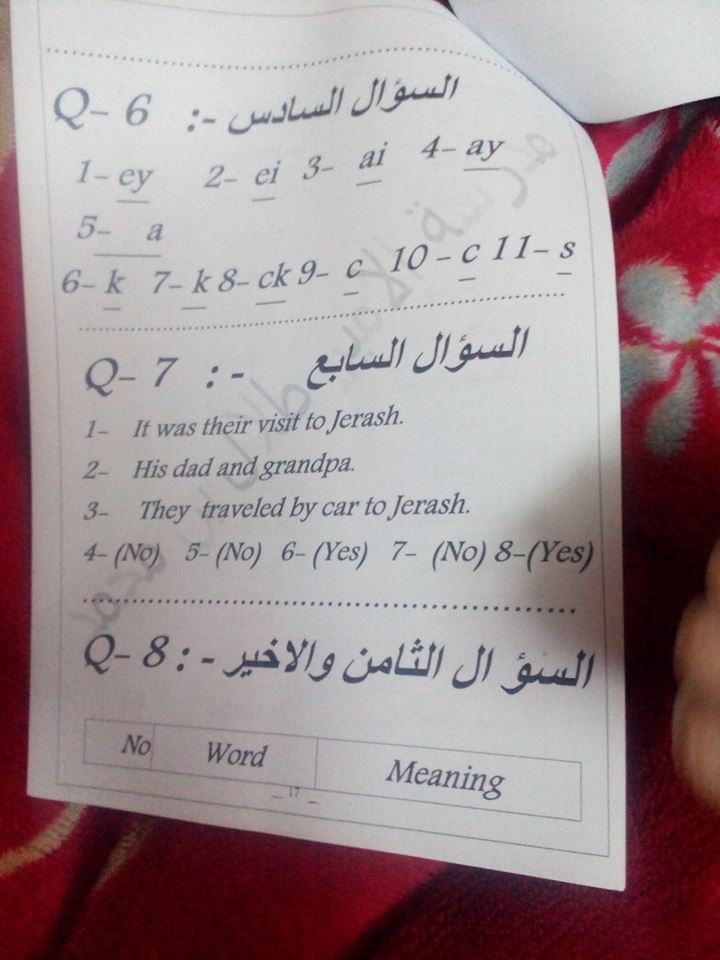 Q- 6 :- السؤال السادس
1- ey 2- ei 3- ai 4- ay
5- a
6- k 7- k 8- ck 9- c 10- c 11- s
Q- 7 :- السؤال السابع
1- It was their visit to Jerash.
2- His dad and grandpa.
3- They traveled by car to Jerash.
4- (No) 5- (No) 6- (Yes) 7- (No) 8-(Yes)
Q- 8 :- السؤ ال الثامن والاخير
No Word Meaning
_ 17 _
مدرسة الامير طلال بن محمد